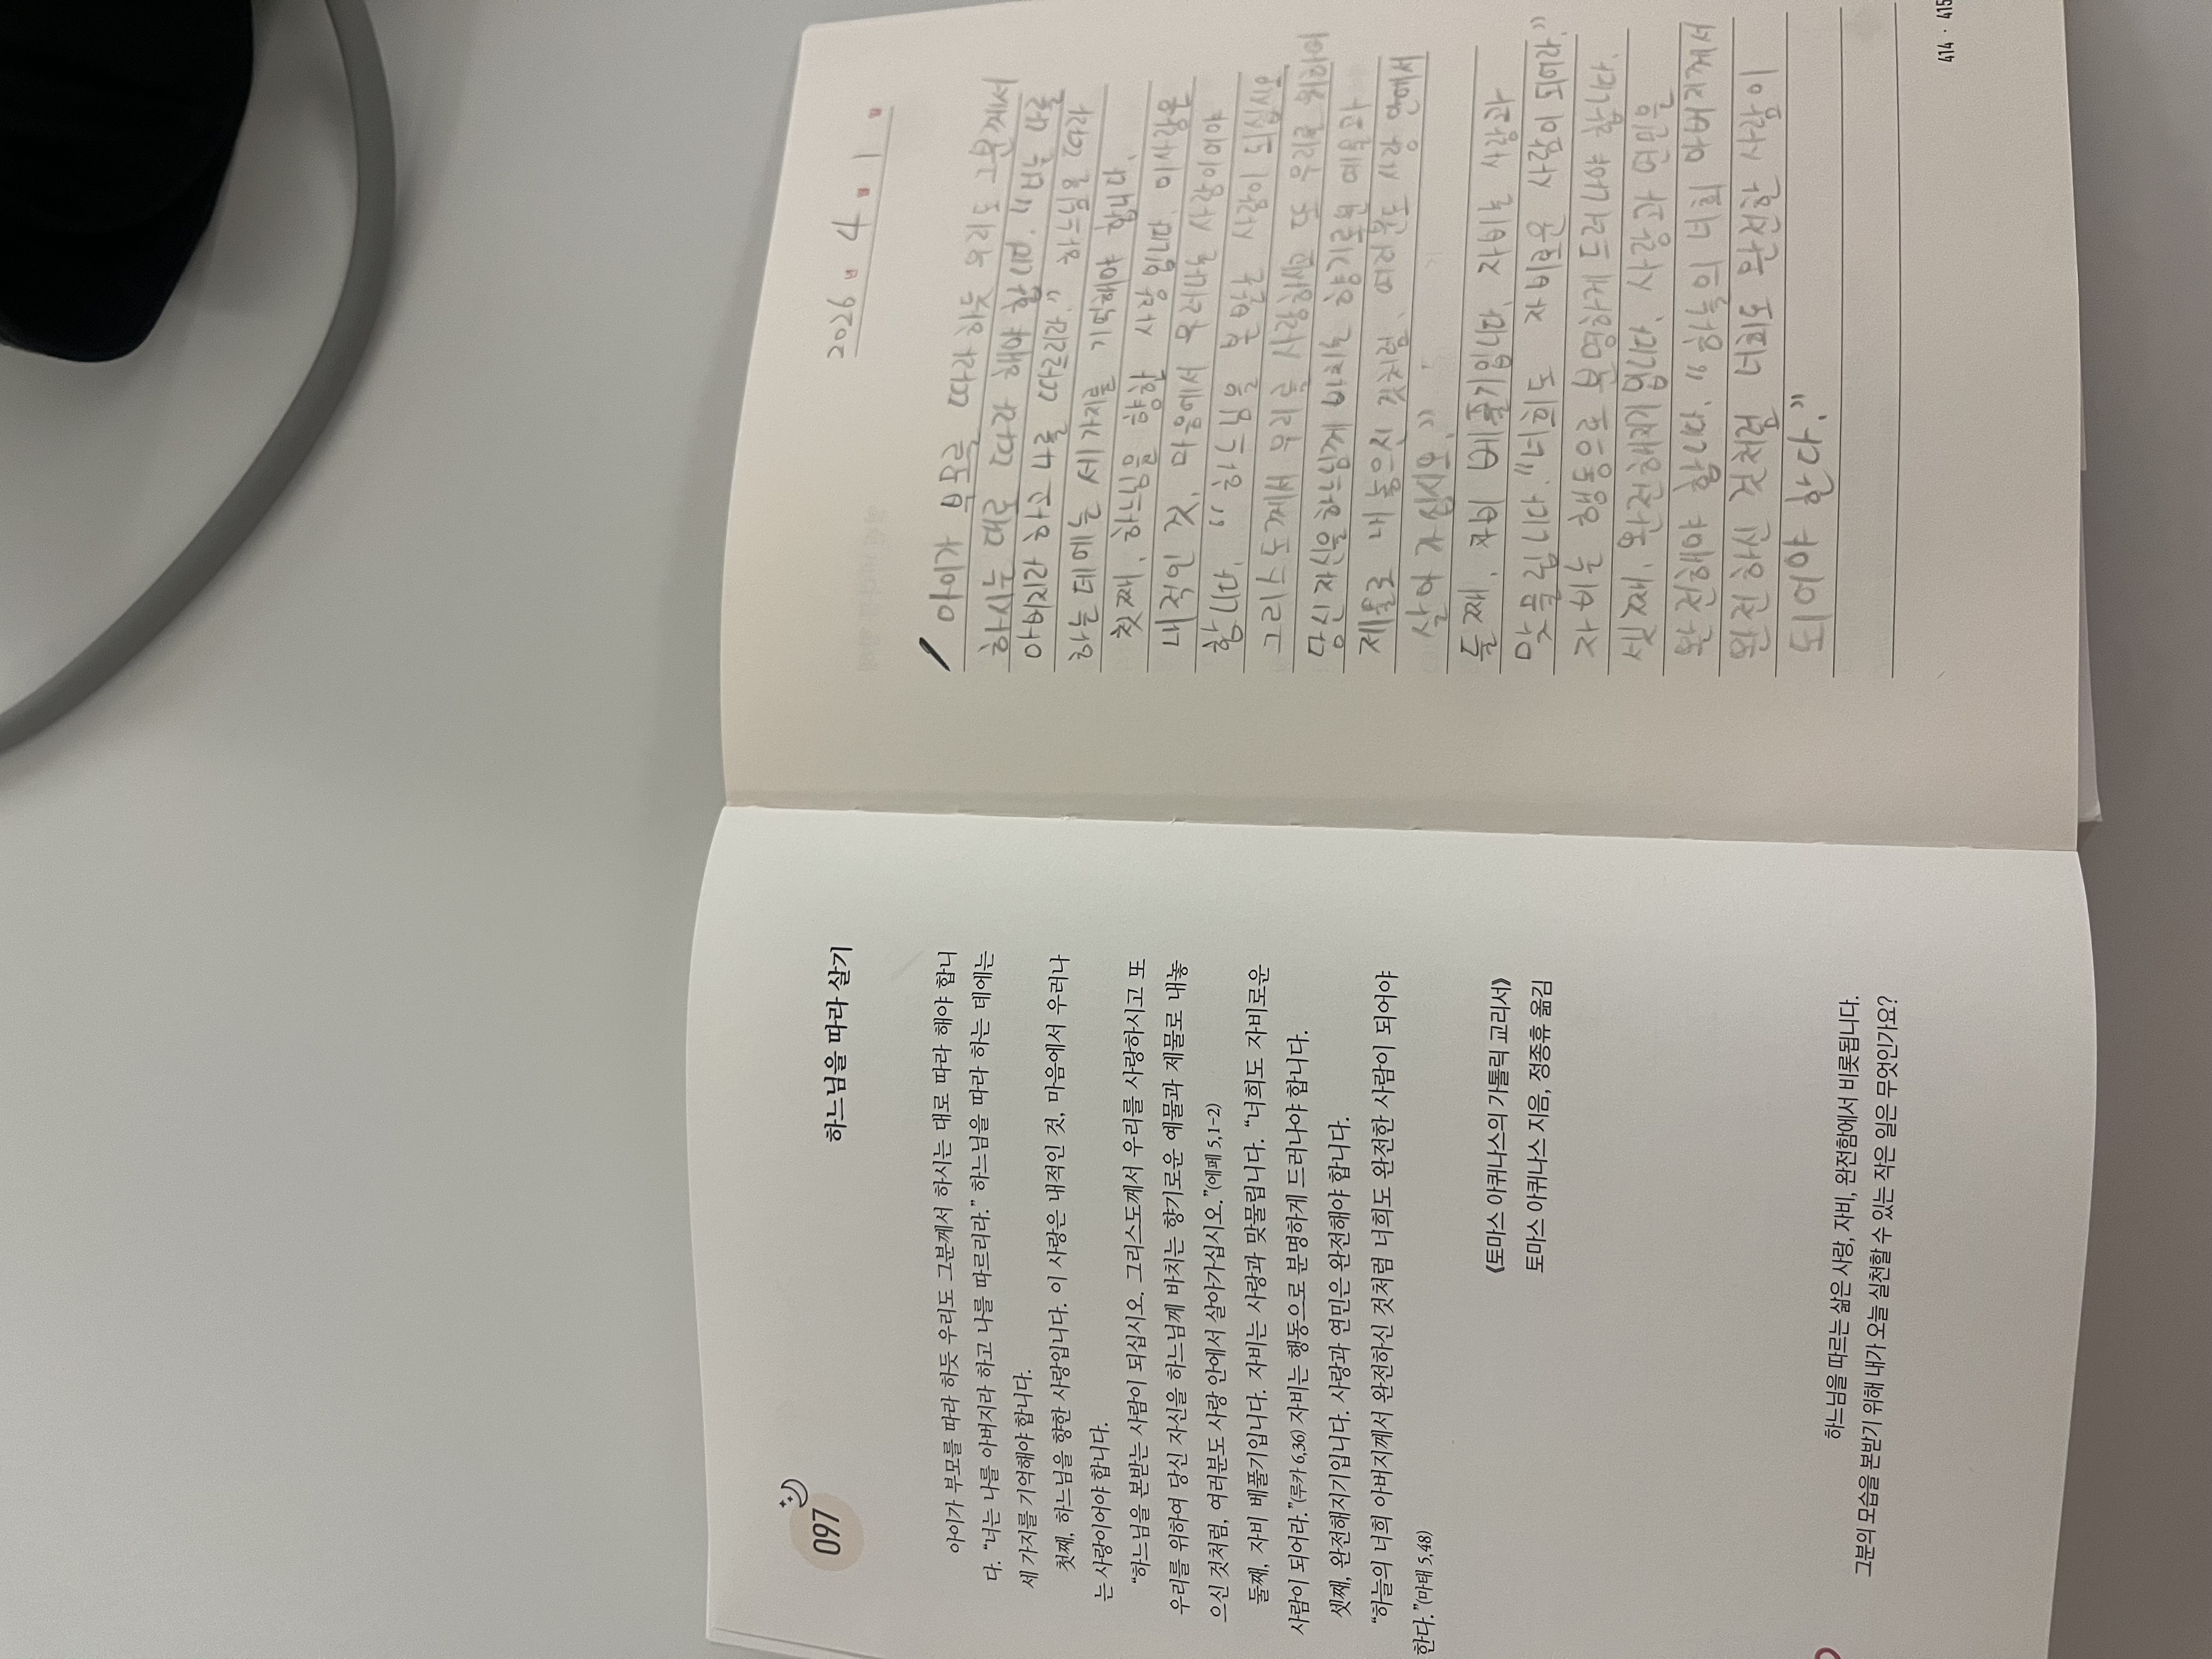 097
하느님을 따라 살기
아이가 부모를 따라 하듯 우리도 그분께서 하시는 대로 따라 해야 합니
다. “너는 나를 아버지라 하고 나를 따르리라.” 하느님을 따라 하는 데에는
세 가지를 기억해야 합니다.
첫째, 하느님을 향한 사랑입니다. 이 사랑은 내적인 것, 마음에서 우러나
는 사랑이어야 합니다.
“하느님을 본받는 사람이 되십시오. 그리스도께서 우리를 사랑하시고 또
우리를 위하여 당신 자신을 하느님께 바치는 향기로운 예물과 제물로 내놓
으신 것처럼, 여러분도 사랑 안에서 살아가십시오.”(에페 5,1-2)
둘째, 자비 베풀기입니다. 자비는 사랑과 맞물립니다. “너희도 자비로운
사람이 되어라.”(루카 6,36) 자비는 행동으로 분명하게 드러나야 합니다.
셋째, 완전해지기입니다. 사랑과 연민은 완전해야 합니다.
“하늘의 너희 아버지께서 완전하신 것처럼 너희도 완전한 사람이 되어야
한다.”(마태 5,48)
《토마스 아퀴나스의 가톨릭 교리서》
토마스 아퀴나스 지음, 정종휴 옮김
하느님을 따르는 삶은 사랑, 자비, 완전함에서 비롯됩니다.
그분의 모습을 본받기 위해 내가 오늘 실천할 수 있는 작은 일은 무엇인가요?
2026 년 4 월 1 일
아이가 부모를 따라 하듯 우리도 그분께서
하시는 대로 따라 해야 합니다. “너는 나를
아버지라 하고 나를 따르리라.” 하느님을 따라
하는 데에는 세 가지를 기억해야 합니다.
첫째, 하느님을 향한 사랑입니다. 이 사랑은
내적인 것, 마음에서 우러나는 사랑이어야
합니다. “하느님을 본받는 사람이 되십시오.
그리스도께서 우리를 사랑하시고 또 우리를 위하여
당신 자신을 하느님께 바치는 향기로운 예물과
제물로 내놓으신 것처럼, 여러분도 사랑 안에서
살아가십시오.”
둘째, 자비 베풀기입니다. 자비는 사랑과
맞물립니다. “너희도 자비로운 사람이 되어라.”
자비는 행동으로 분명하게 드러나야 합니다.
셋째, 완전해지기입니다. 사랑과 연민은
완전해야 합니다. “하늘의 너희 아버지께서
완전하신 것처럼 너희도 완전한 사람이
되어야 한다.”
414 · 415